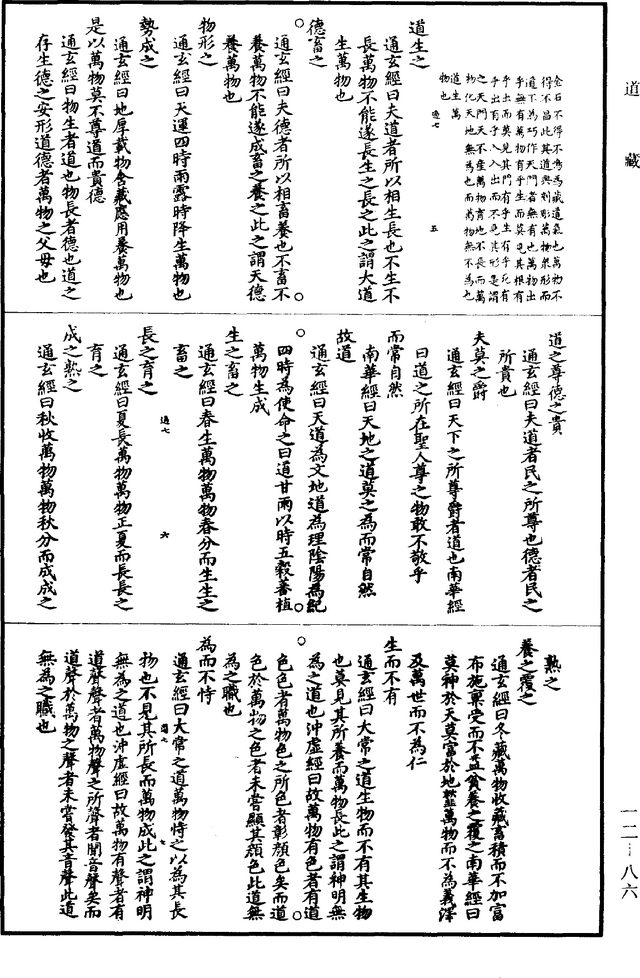 道藏
金石不得不鳴為藏道氣也萬物不
得不昌此其道與刻彫萬物衆形而
道下為巧作天門者無有也萬物出
乎無有萬物有乎生而莫見其根有
乎出而莫見其門有乎生有乎死有
乎出有乎入入出而不見其形是謂
之天門天不產萬物育地不長而萬
物化天地無為也而萬物無不為也
道生萬
物也
通七 五
道生之
通玄經曰夫道者所以相生長也不生不
長萬物不能遂長生之長之此之謂大道
生萬物也
德畜之
通玄經曰夫德者所以相畜養也不畜不
養萬物不能遂成畜之養之此之謂天德
養萬物也
物形之
通玄經曰天運四時雨露時降生萬物也
勢成之
通玄經曰地厚載物含藏應用養萬物也
是以萬物莫不尊道而貴德
通玄經曰物生者道也物長者德也道之
存生德之安形道德者萬物之父母也
道之尊德之貴
通玄經曰夫道者民之所尊也德者民之
所貴也
夫莫之爵
通玄經曰天下之所尊爵者道也南華經
曰道之所在聖人尊之物敢不敬乎
而常自然
南華經曰天地之道莫之為而常自然
故道
通玄經曰天道為文地道為理陰陽為紀
四時為使命之曰道甘雨以時五穀蕃植
萬物生成
生之畜之
通玄經曰春生萬物萬物春分而生生之
畜之
長之育之
通七 六
通玄經曰夏長萬物萬物正夏而長長之
育之
成之熟之
通玄經曰秋收萬物萬物秋分而成成之
熟之
養之覆之
通玄經曰冬藏萬物收藏畜積而不加富
布施稟受而不益貧養之覆之南華經曰
莫神於天莫富於地䪠萬物而不為義澤
及萬世而不為仁
生而不有
通玄經曰大常之道生物而不有其生物
也莫見其所養而萬物長此之謂神明無
為之道也沖虛經曰故萬物有色者有道
色色者萬物色之所色者彰顏色矣而道
色於萬物之色者未嘗顯其顏色此道無
為之職也
為而不恃
通玄經曰大常之道萬物恃之以為其長
通七 七
物也不見其所長而萬物成此之謂神明
無為之道也沖虛經曰故萬物有聲者有
道聲聲者萬物聲之所聲者聞音聲矣而
道聲於萬物之聲者未嘗發其音聲此道
無為之職也
一二—八六